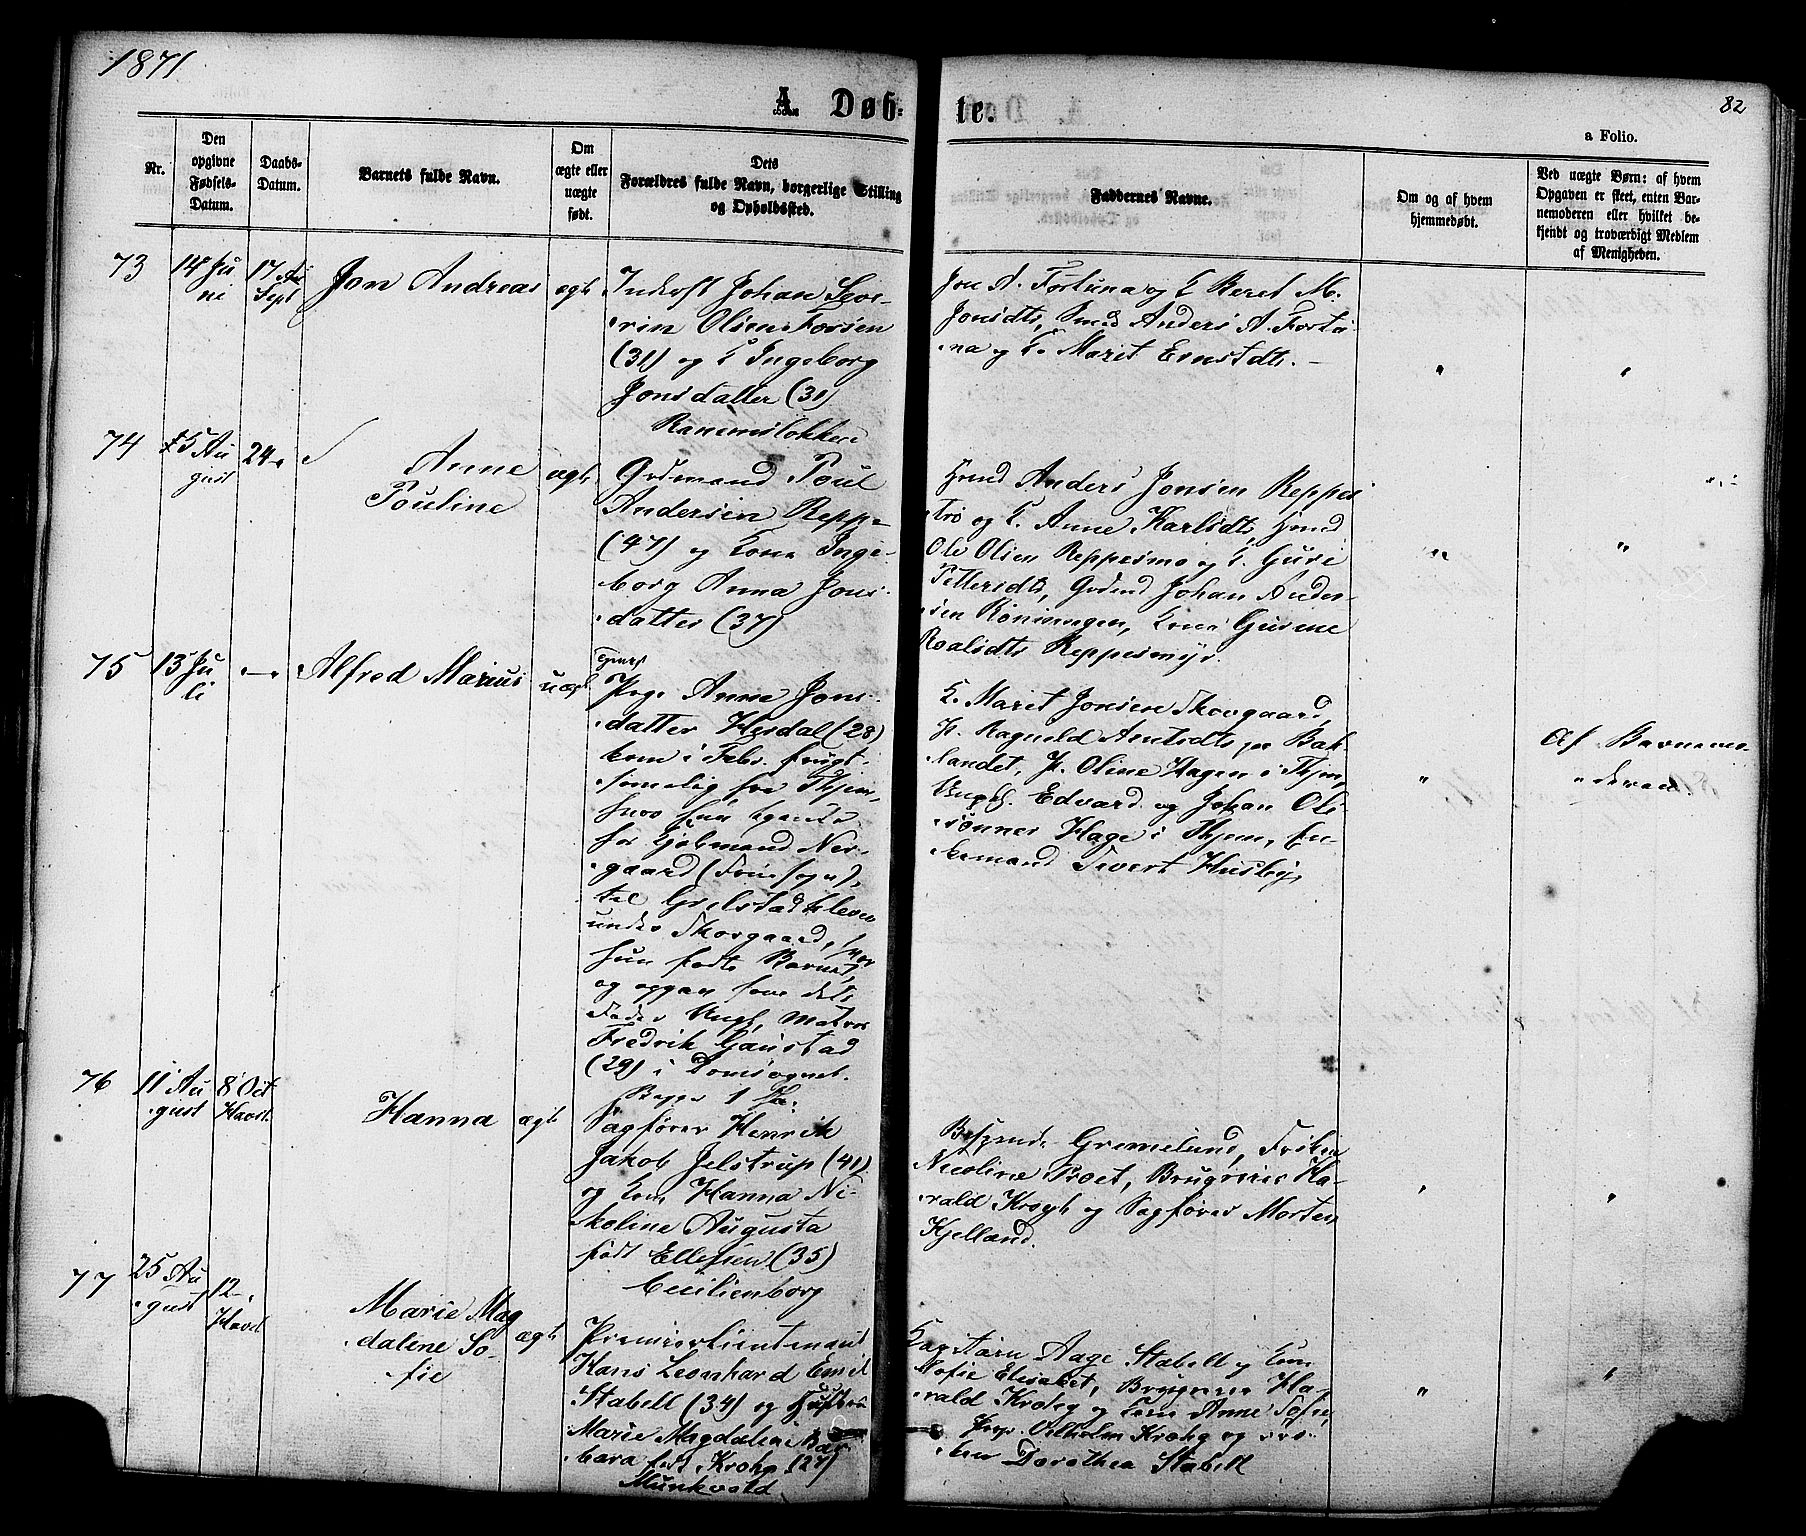 1871
82
A. Døb-
te.
a Folio.
Nr.
Den
opgivne
Fødsels-
Datum.
Daabs-
Datum.
Barnets fulde Navn.
Om
ægte eller
uægte
født.
Dets
Forældres fulde Navn, borgerlige Stilling
og Opholdssted.
Faddernes Navne.
Om og af hvem
hjemmedøbt.
Ved uægte Børn: af hvem
Opgaven er skeet, enten Bar-
nemoderen eller hvilket be-
kjendt og troværdigt Medlem
af Menigheden.
73
14 Ju
ni
17
Sept
Jon Andreas
ægte
Inderst Johan Seve-
rin Olsen Forsen
(31) og K Ingeborg
Jonsdatter (31)
Ranemsløkken
Jon A. Fortuna og K Beret M.
Jonsdtr, Smed Anders A. Fortu
na og K. Marit Ernstdtr. -
74
15 Au
gust
24 -
Anne
Pouline
ægte
Grdmand Poul
Andersen Reppe
(47) og Kone Inge-
borg Anna Jons-
datter (37)
Hmd Anders Jonsen Reppes
trø og K. Anne Karlsdtr, Hmd
Ole Olsen Reppesmo og K. Guri
Pettersdtr, Grdmd Johan Ander-
sen Rønningen, Kone Gurine
Roalsdtr Reppesmyr.
75
13 Ju
li
-
Alfred Marius
uægte
Pige Anne Jons-
datter Hesdal (28)
kom i Febr. frugt-
sommelig fra Thjem,
hvor hun tjente
for Gjørmand Ner-
gaard (Frue sogn),
til Grelstadkleven
under Skovgaard, hvor
hun fødte Barnet,
og opgav som dets
Fader Ungk. Matros
Fredrik Gaustad
(29) i Domsognet.
Begges 1ste
K. Marit Jonsen Skovgaard,
P. Ragnild Arntsdtr paa Bak-
landet, P. Oline Hagen i Thjem,
Ungk. Edvard og Johan Ole
sønner Hage i Thjem, En-
kemand Sivert Husby,
Af Barnemo-
deren.
76
11 Au
gust
8 Oct
Havst.
Hanna
ægte
Sagfører Henrik
Jakob Jelstrup (41)
og Kone Hanna Ni-
koline Augusta
født Ellefsen (35)
Cecilienborg
Grønelund, Frøken
Nicoline Proet, Brugseier Ha-
rald Krogh og Sagfører Morten
Kjelland.
77
25 Au
gust
12 -
Havst
Marie Mag
dalene So-
fie
ægte
Premierlieutenant
Hans Leonhard Emil
Stabell (34) og Hustru
Marie Magdalene Bar
bara født Krohg (27)
Munkvold
Kapitain Aage Stabell og Kone
Sofie Elisabet, Brugseier Ha-
rald Krohg og Kone Anne Sofie,
Vilhelm Krohg og Frø-
ken Dorothea Stabell